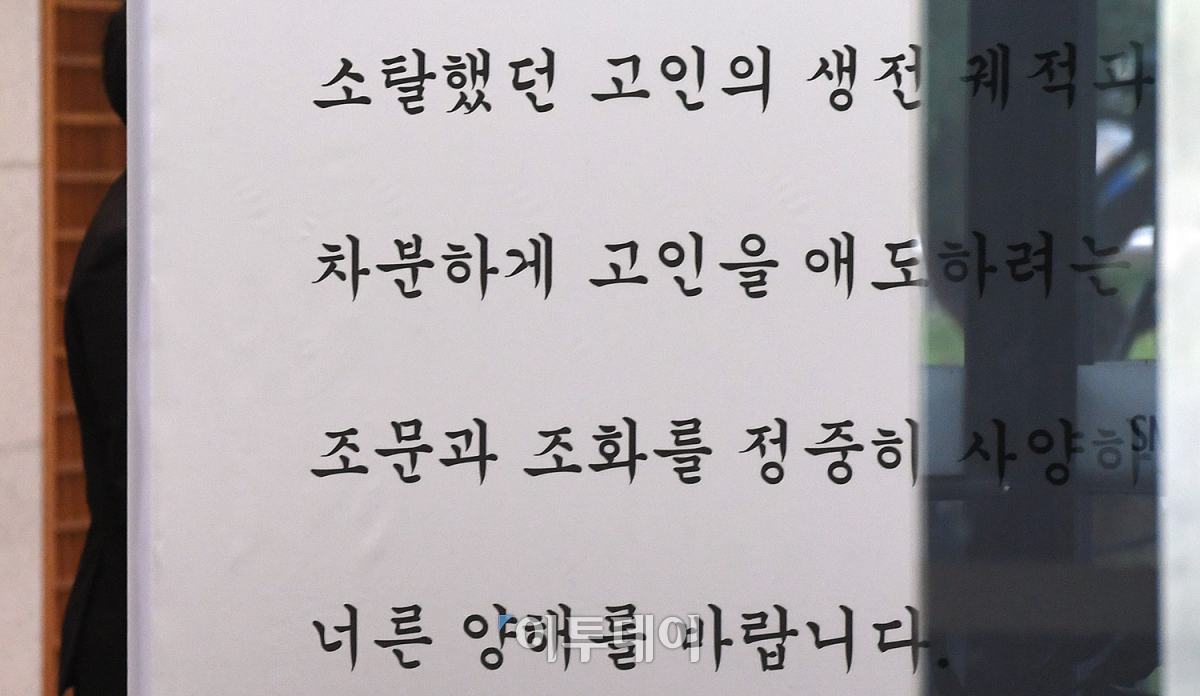 소탈했던 고인의 생전 궤적과
차분하게 고인을 애도하려는
조문과 조화를 정중히 사양하
너른 양해를 바랍니다.
이투데이
SN